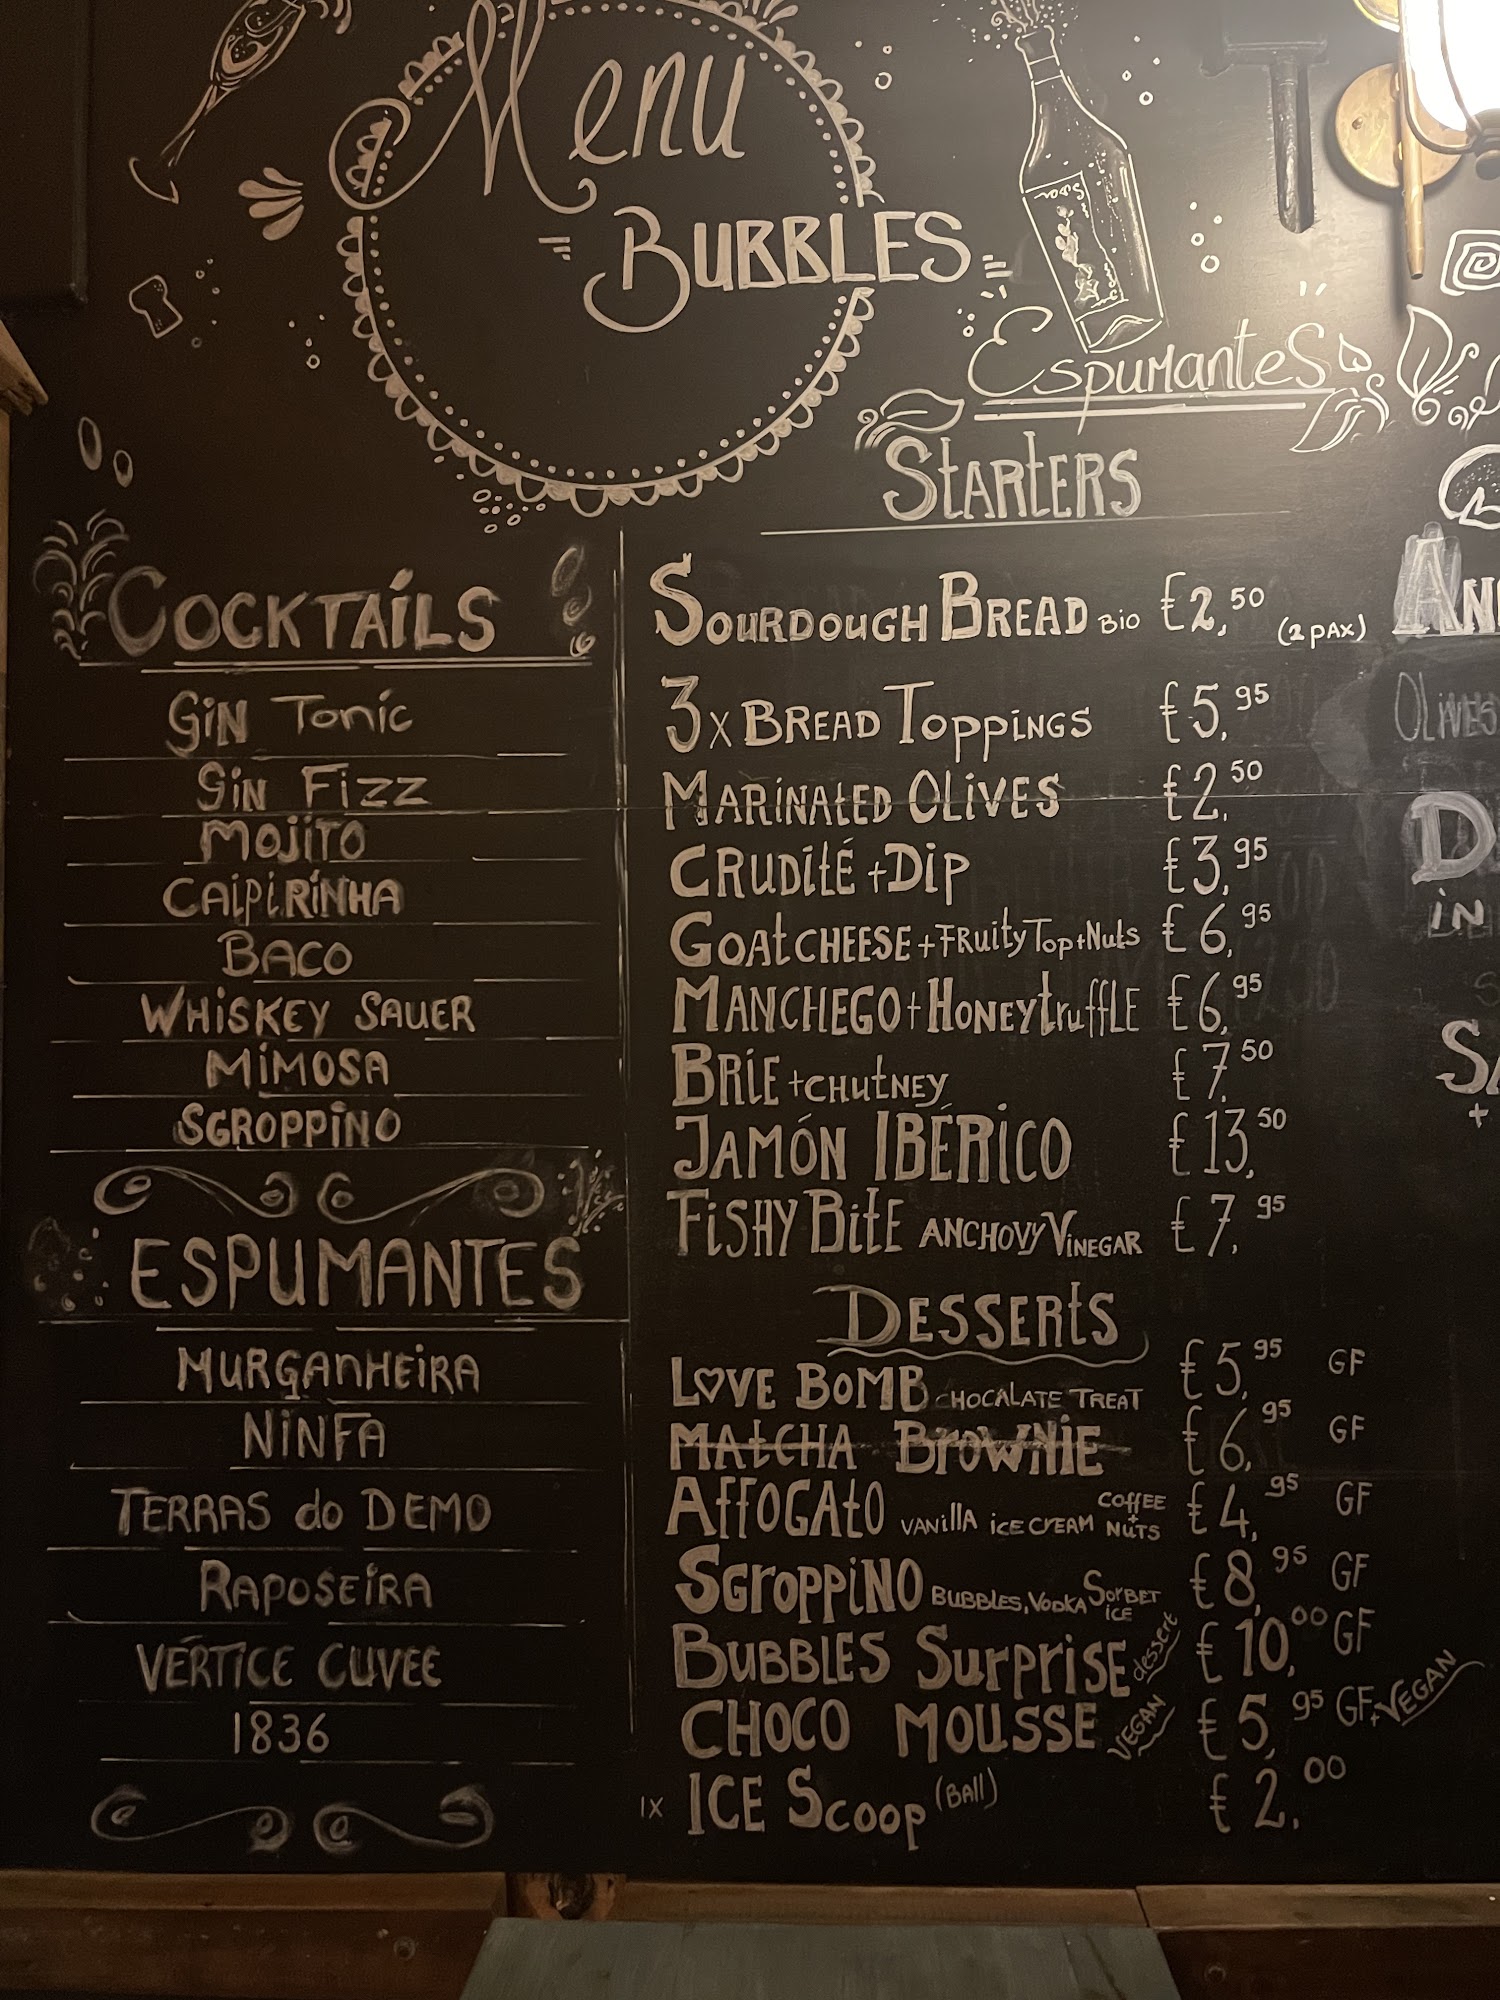 Menu
BUBBLES
EspumanteS
StARtERS
COCKTAiLS
GiN Tonic
GiN Fizz
MOJiTO
CAIPiRiNHA
BACO
WHiSKEY SAUER
MiMOSA
SGROPPiNO
ESPUMANTES
MURGANHEiRA
NiNFA
TERRAS do DEMO
RAPOSEiRA
VÉRTICE CUVEE
1836
SOURDOUGH BREAD BiO €2,50 (2 PAX)
3x BREAD TOPPiNGS €5,95
MARiNAtED OLiVES €2,50
CRUDitÉ + DiP €3,95
GOAtCHEESE + FRuity Top + Nuts €6,95
MANCHEGO + HONEYtruffLE €6,95
BRiE + CHUtNEY €7,50
JAMÓN IBÉRiCO €13,50
FiSHY BitE ANCHOVY ViNEGAR €7,95
DESSERtS
LOVE BOMB CHOCALATE TREAT €5,95 GF
MAtCHA BROWNiE €6,95 GF
AffOGAtO VANillA iCE CREAM COffEE + NUTS €4,95 GF
SGroppiNO BUBBLES, VODKA SORBET ICE €8,95 GF
BUBBLES SurpriSE dessert €10,00 GF
CHOCO MOUSSE VEGAN €5,95 GF + VEGAN
1X ICE Scoop (BAll) €2,00
OLiVES
iN